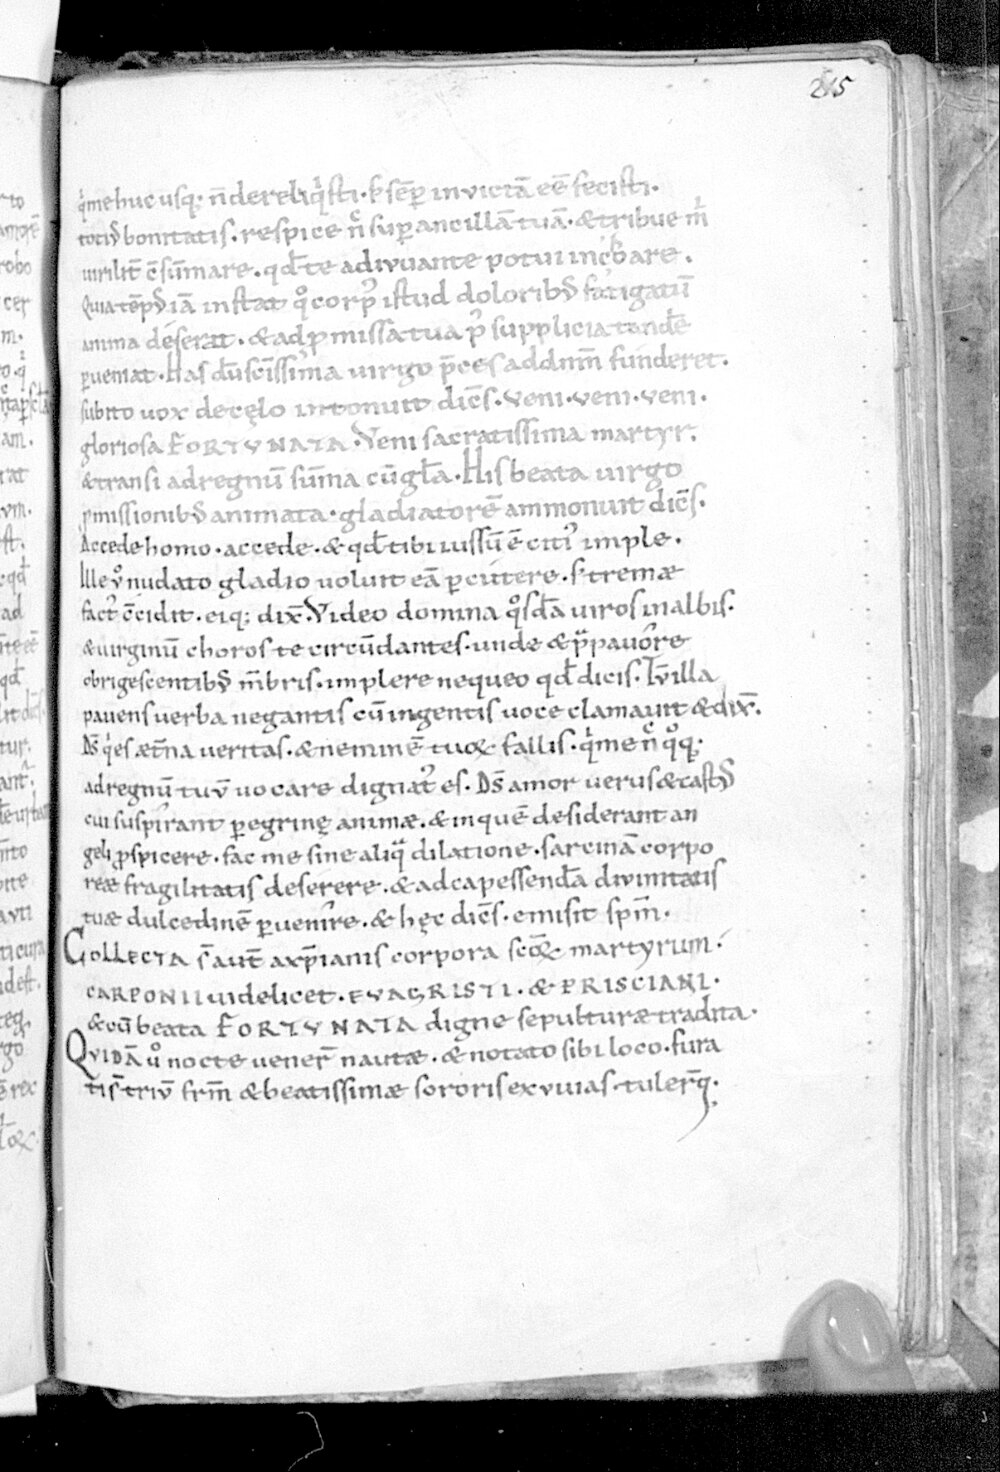 215
q̇me huc usq; n̄ dereliq̇sti · s; sēp̄ invictā eē fecisti.
totiꝰ bonitatis · respice n̊ sup̄ ancillā tuā · & tribue m̊
uirilit̄ c̄sūmare · qđ te adiuuante potui inchoare.
Quia tēpꝰ iā instat q̊ corpꝰ istud doloribꝰ fatigatū
anima deserat · & ad p̄missa tua p̄ supplicia tandē
p̄ueniat · Has dū sc̄issima virgo p̄ces ad dn̄m funderet ·
subito uox de cęlo intonuit dic̄s · veni · veni · veni ·
gloriosa FORTVNATA · Veni sacratissima martyr.
& transi ad regnū sūma cū gl̄a · His beata virgo
p̄missionibꝰ animata · gladiatorē ammonuit dic̄s.
Accede homo · accede · & qđ tibi iussū ē citiꝰ imple.
Ille ů nudato gladio voluit eā p̄cutere · s; tremæ
factꝰ c̄cidit · eiq; dix̄ · Video domina q̊sdā viros in albis ·
& uirginū choros te circūdantes · unde & p̄ pavore
obrigescentibꝰ m̄bris · implere nequeo qđ dicis. Tv̄ illa
pavens uerba negantis cū ingentis voce clamavit & dix̄.
Ds̄ q̇ es æt̄na ueritas · & neminē tuoꝝ fallis · q̇ me n̄c q̊q;
ad regnū tuū uocare dignatꝰ es. Ds̄ amor uerus & castꝰ
cui suspirant p̄egrinę animæ · & in quē desiderant an
geli p̄spicere · fac me sine aliq̄ dilatione · sarcinā corpo
reæ fragilitatis deserere · & ad capessendā divinitatis
tuæ dulcedinē p̄venire · & hęc dic̄s · emisit sp̄m.
COLLECTA s̄ aut̄ a xp̄ianis corpora sc̄oꝝ martyrum ·
CARPONII uidelicet · EVAGRISTI · & PRISCIANI ·
& cū beata FORTVNATA digne sepulturæ tradita ·
QVIDĀ ů nocte uener̄ nautæ · & notato sibi loco · fura
tis̄ triū fr̄m & beatissimæ sororis exuvias · tuler̄q;